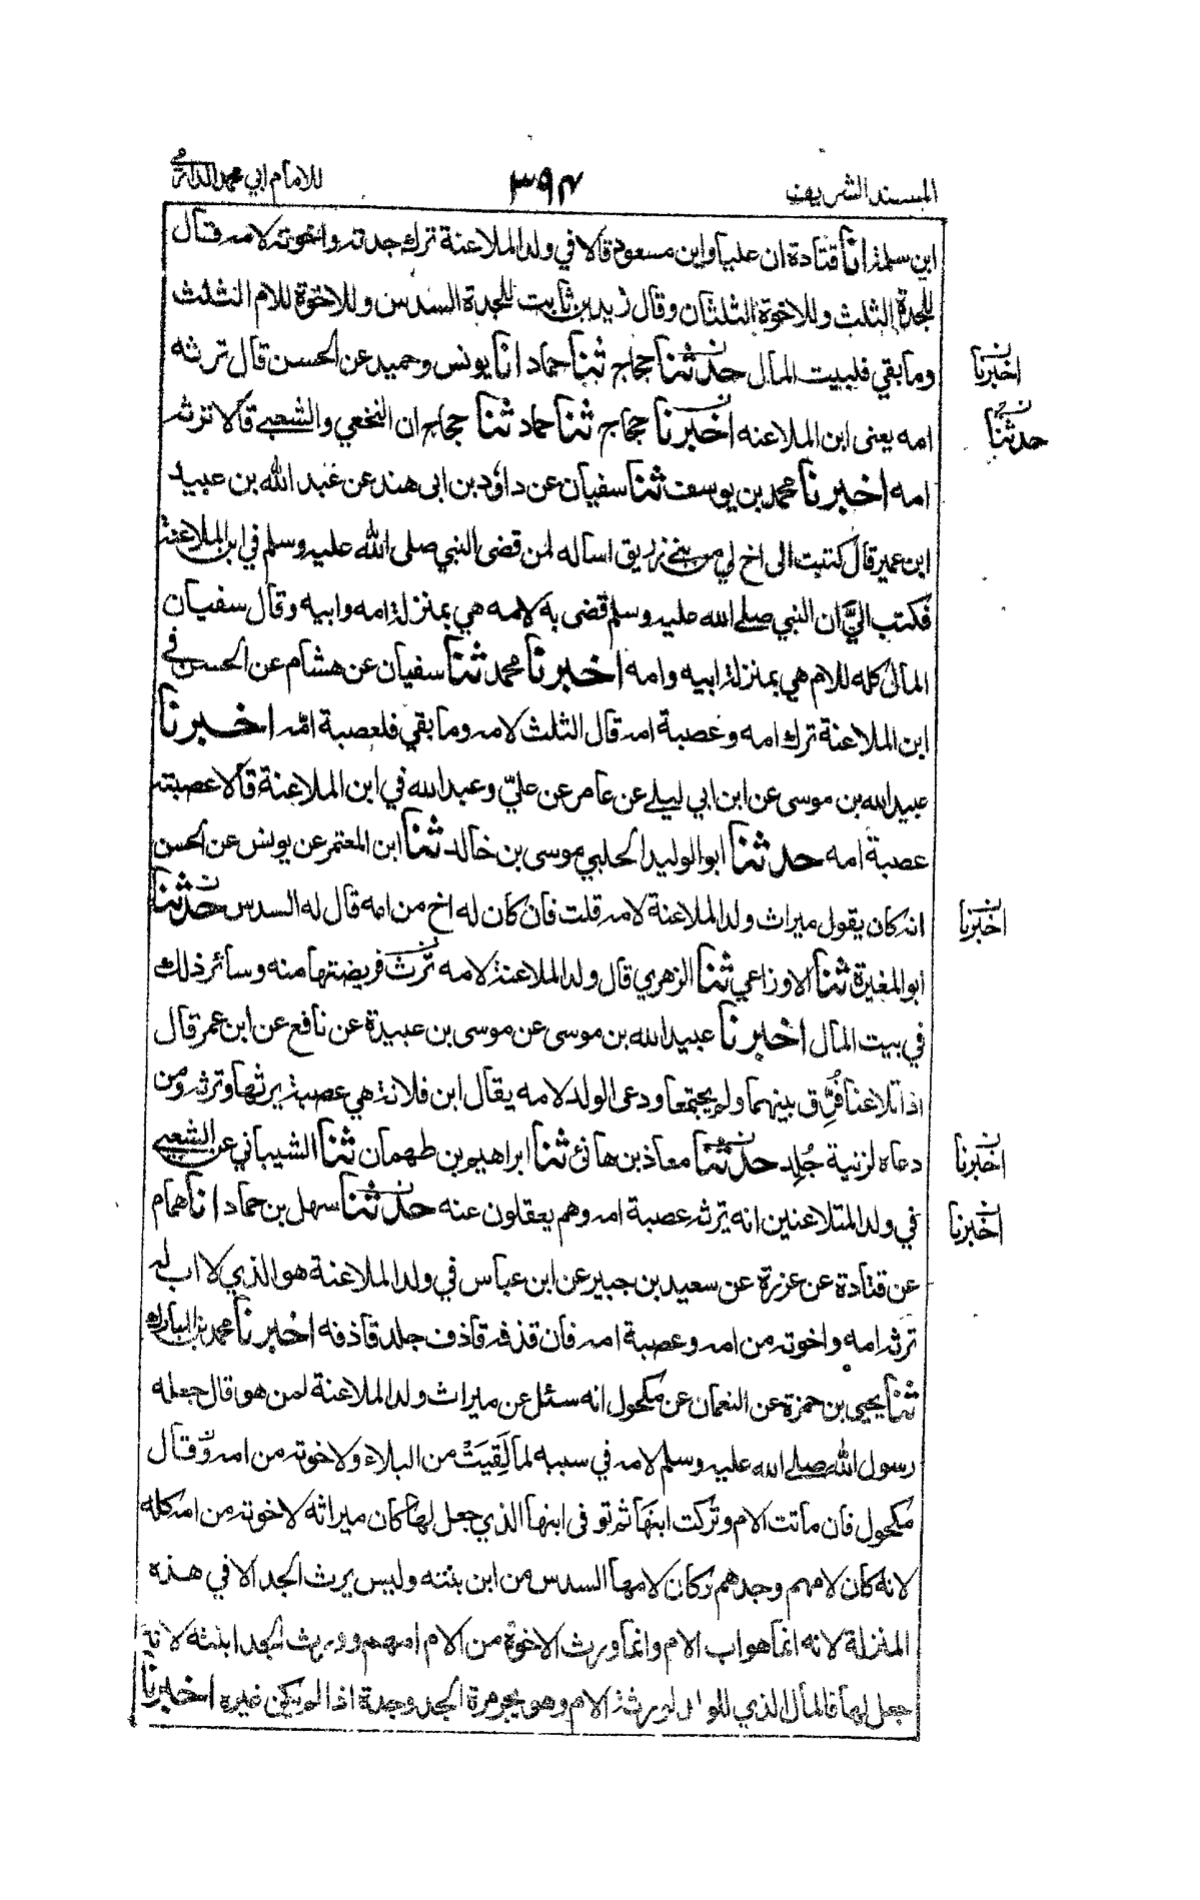 المسند الشريف ٣٩٤ للامام ابي محمد الدارمي
ابن سلمة انا قتادة ان عليا وابن مسعود قالا في ولد الملاعنة ترك جدته واخوته لامه قال
للجدة الثلث وللاخوة الثلثان وقال زيد بن ثابت للجدة السدس وللاخوة للام الثلث
وما بقي فلبيت المال حدثنا حجاج ثنا حماد انا يونس وحميد عن الحسن قال ترثه
اخبرنا
امه يعنى ابن الملاعنه اخبرنا حجاج ثنا حماد ثنا حجاج ان النخعي والشعبي قالا ترثه
حدثنا
امه اخبرنا محمد بن يوسف ثنا سفيان عن داؤد بن ابى هند عن عبد الله بن عبيد
ابن عمير قال كتبت الى اخ لي من بني زريق اساله لمن قضى النبي صلى الله عليه وسلم في ابن الملاعنة
فكتب اليَّ ان النبي صلى الله عليه وسلم قضى به لامه هي بمنزلة امه وابيه وقال سفيان
المال كله للام هي بمنزلة ابيه وامه اخبرنا محمد ثنا سفيان عن هشام عن الحسن في
ابن الملاعنة ترك امه وعصبة امه قال الثلث لامه وما بقي فلعصبة امه اخبرنا
عبيد الله بن موسى عن ابن ابي ليلى عن عامر عن علي وعبد الله في ابن الملاعنة قالا عصبته
عصبة امه حدثنا ابو الوليد الحلبي موسى بن خالد ثنا ابن المعتمر عن يونس عن الحسن
انه كان يقول ميراث ولد الملاعنة لامه قلت فان كان له اخ من امه قال له السدس حدثنا
اخبرنا
ابو المغيرة ثنا الاوزاعي ثنا الزهري قال ولد الملاعنة لامه ترث فريضتها منه وسائر ذلك
في بيت المال اخبرنا عبيد الله بن موسى عن موسى بن عبيدة عن نافع عن ابن عمر قال
اذا تلاعنا فُرِّق بينهما ولم يجتمعا ودعى الولد لامه يقال ابن فلانة هي عصبته يرثها وترثه ومن
دعاه لزنية جُلِد حدثنا معاذ بن هانئ ثنا ابراهيم بن طهمان ثنا الشيباني عن الشعبي
اخبرنا
في ولد المتلاعنين انه يرثه عصبة امه وهم يعقلون عنه حدثنا سهل بن حماد انا همام
اخبرنا
عن قتادة عن عزرة عن سعيد بن جبير عن ابن عباس في ولد الملاعنة هو الذي لا اب له
ترثه امه واخوته من امه وعصبة امه فان قذفه قاذف جلد قاذفه اخبرنا محمد بن المبارك
ثنا يحيى بن حمزة عن النعمان عن مكحول انه سئل عن ميراث ولد الملاعنة لمن هو قال جعله
رسول الله صلى الله عليه وسلم لامه في سببه لما لَقِيَتْ من البلاء ولاخوته من امه وقال
مكحول فان ماتت الام وتركت ابنها ثم توفى ابنها الذي جعل لها كان ميراثه لاخوته من امه كله
لانه كان لامهم وجدهم وكان لامها السدس من ابن بنته وليس يرث الجد الا في هذه
المنزلة لانه انما هو اب الام وانما ورث الاخوة من الام امهم وورث الجد ابنته لانه
جعل لها فالمال الذي للولد لورثة الام وهو يحرزه الجد وحده اذا لم يكن غيره اخبرنا